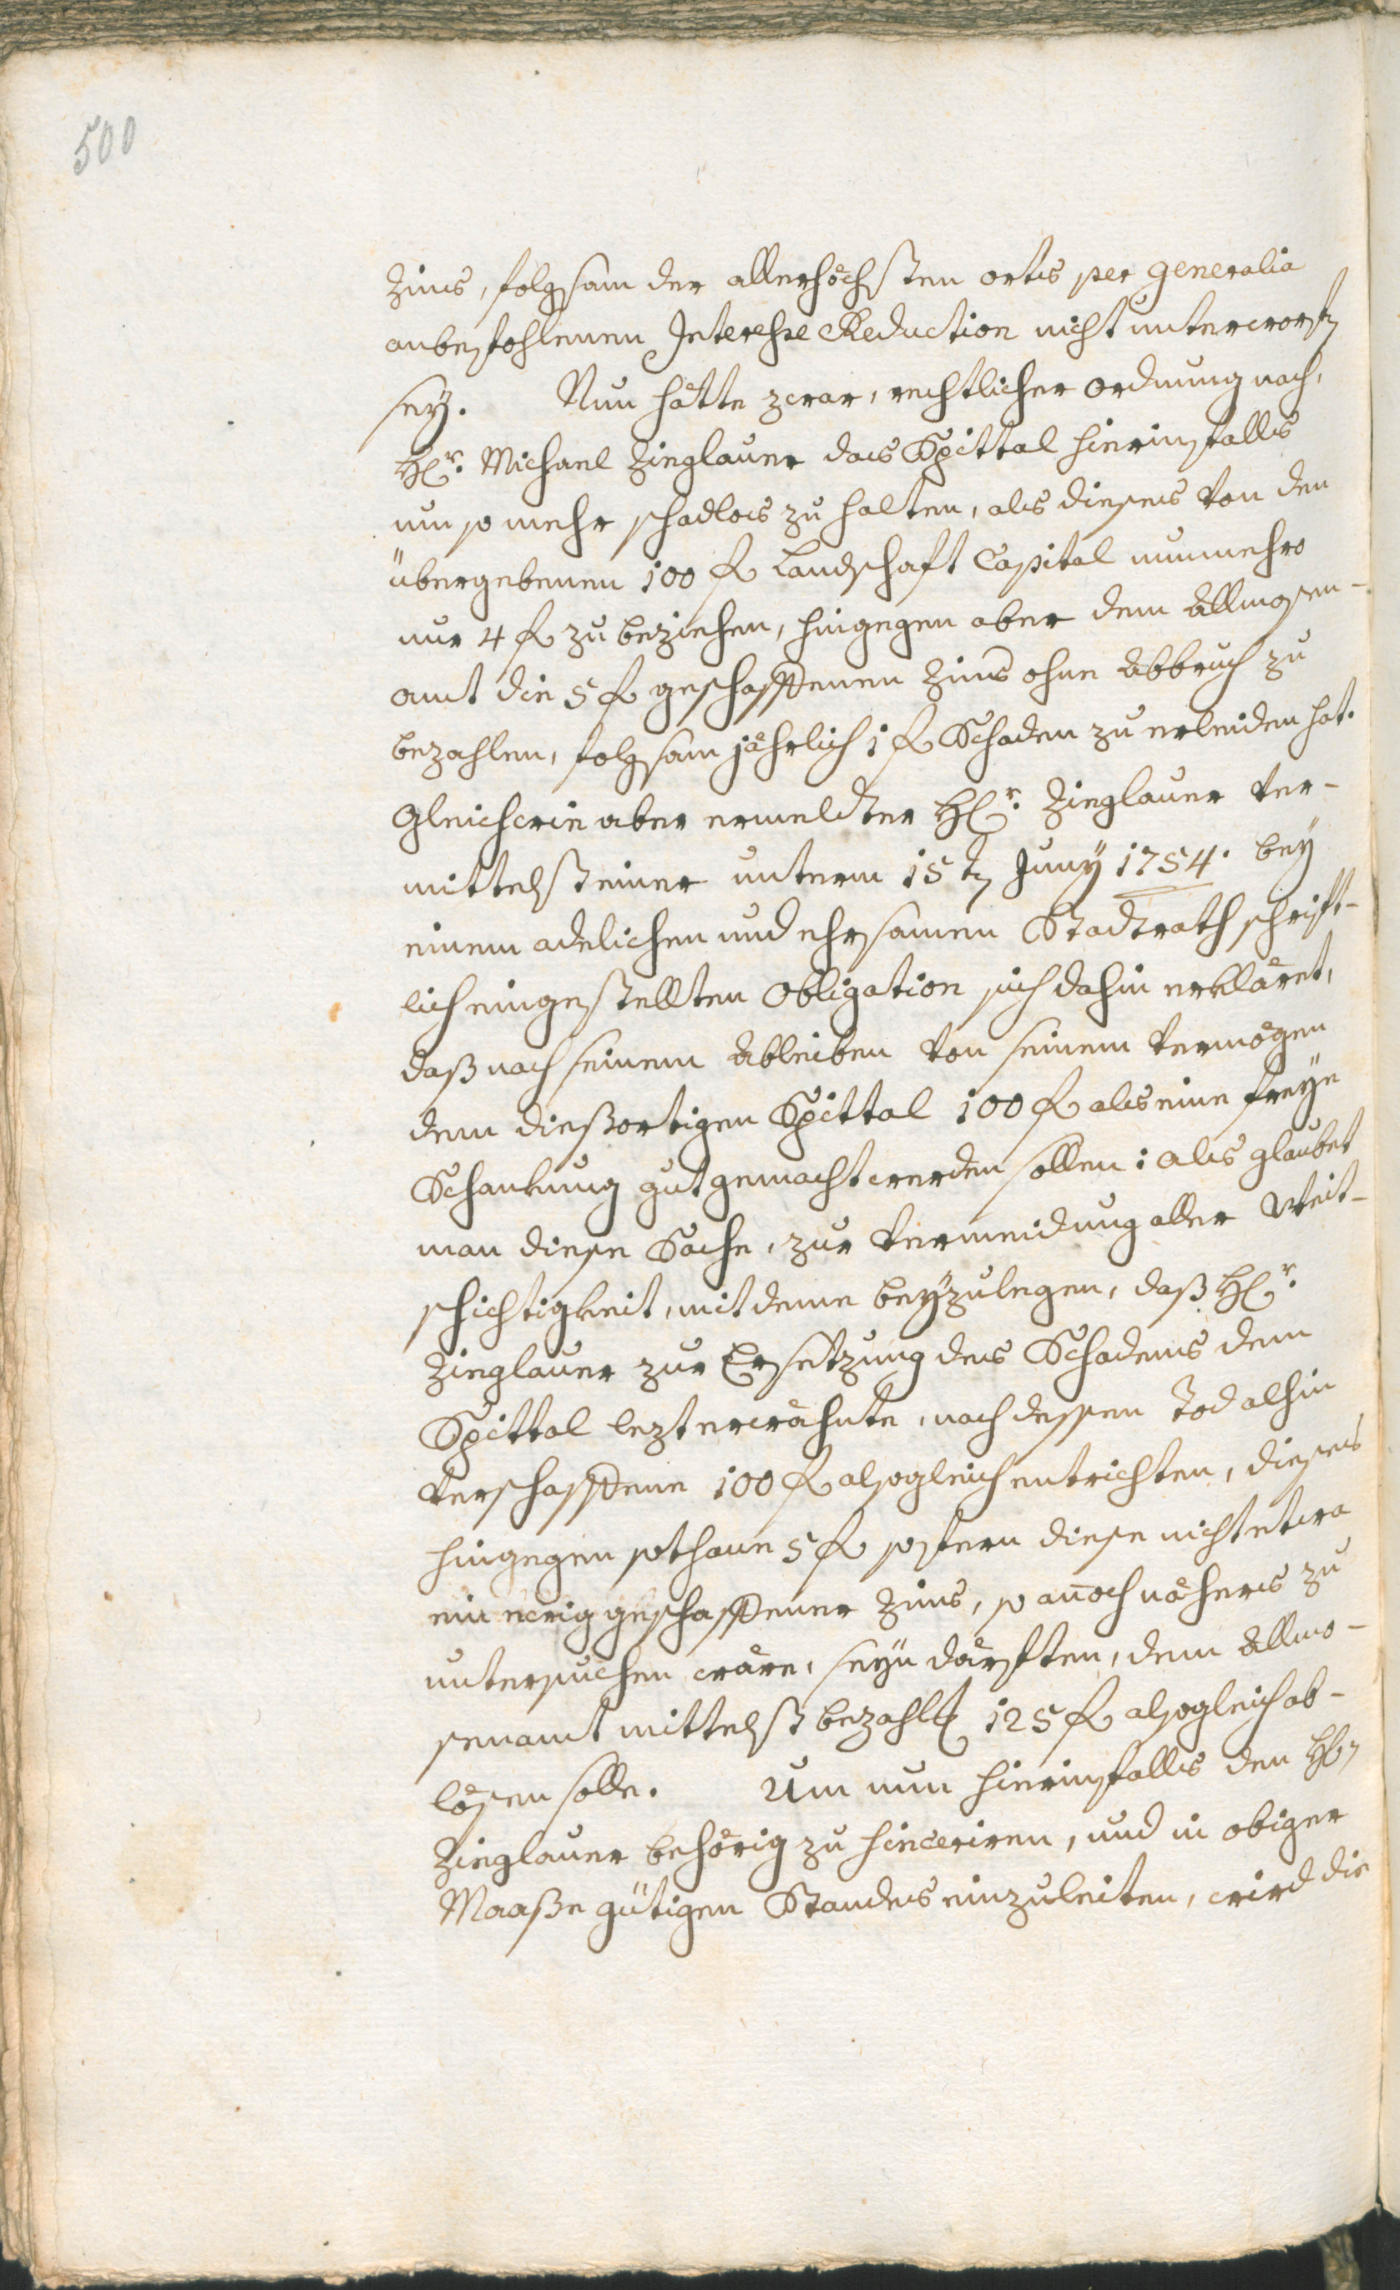 500
Zins, folgsam der allerhöchsten orts per generalia
anbefohlenen Interesse Reduction nicht unterworfen
sey. Nun hätte zwar, rechtlicher ordnung nach,
H[er]r. Michael Zieglauer das Spittal hierinfalls
um so mehr schadlos zu halten, als dieses von den
übergebenen 100 f Landschaft Capital nunmehro
nur 4 f zu beziehen, hingegen aber dem Allmosen-
amt die 5 f geschaffenen Zins ohne Abbruch zu
bezahlen, folgsam jährlich 1 f Schaden zu erleiden hat.
Gleichwie aber ermeldter H[er]r. Zieglauer ver-
mittelst einer unterm 15ten Juny 1754. bey
einem adelichen und ehrsamen Stadtrath schrift-
lich eingestellten Obligation sich dahin erkläret,
daß nach seinem Ableiben von seinem Vermögen
dem dießortigen Spittal 100 f als eine freye
Schankung gut gemacht werden sollen: als glaubet
man diese Sache, zur Vermeidung aller Weit-
schichtigkeit, mit deme beyzulegen, daß H[er]r.
Zieglauer zur Ersetzung des Schadens dem
Spittal lezt erwähnte, nach dessen Tod alhin
verschaffene 100 f alsogleich entrichten, dieses
hingegen sothane 5 f sofern diese nicht etwa
ein ewig geschaffener Zins, so an̄och näheres zu
untersuchen wäre, seyn därften, dem Allmo-
senamt mittelst bezahlt 125 f alsogleich ab-
lösen solle. Um nun hierinfalls den H[errn]
Zieglauer behörig zu hinceriren, und in obiger
Maaße gütigen Standes einzuleiten, wird die